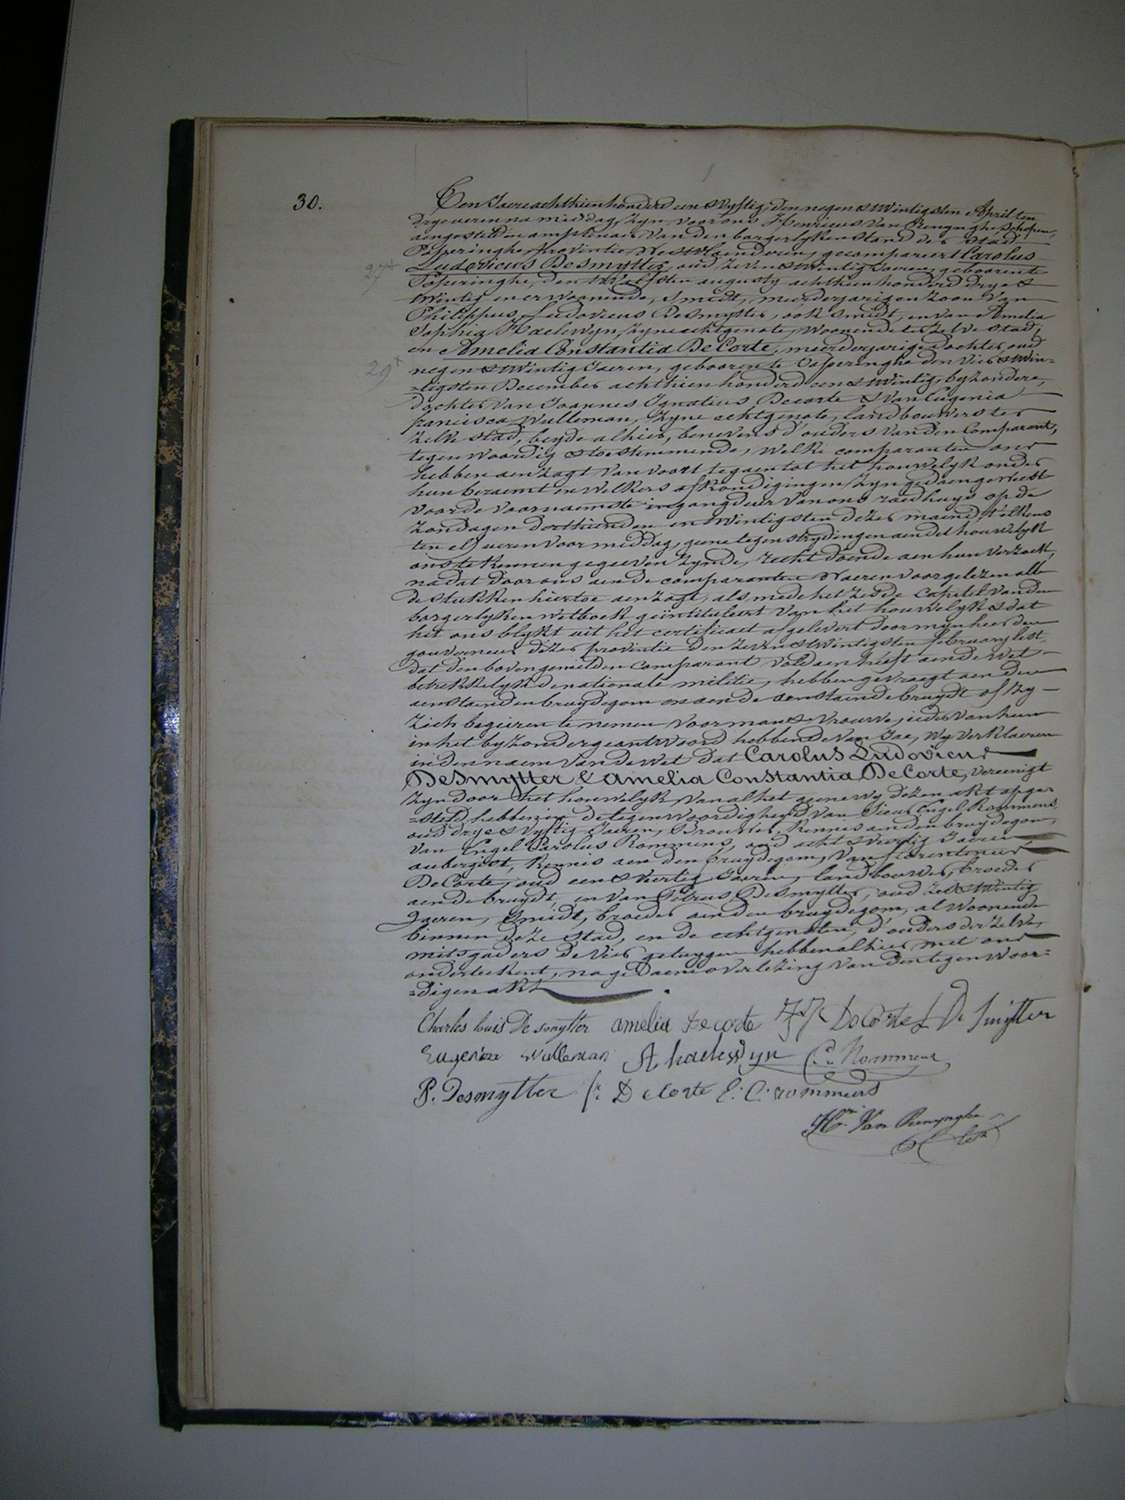 30.
Ten Jaere achthien honderd een & vyftig, den negen & twintigsten April ten
drye ueren na middag, zyn voor ons Henricus Van Renynghe, schepen,
aengesteld en amptenaer van den borgerlyken stand der stad
Poperinghe, Provintie West Vlaenderen, gecompareert Carolus
27
Ludovicus DeSmytter, oud zeven & twintig Jaeren, geboren te
Poperinghe, den augusty achthien honderd drye &
twintig en er woonende, smidt, meerderjarigen zoon van
Philippus Ludovicus DeSmytter, ook smidt, en van Amelia
Sophia Haelewyn, zyne echtgenote, woonende ter zelve stad,
29
en Amelia Constantia DeCorte, meerderjarige dochter, oud
negen & twintig Jaeren, geboren te Poperinghe den vier & twin-
-tigsten December achthien honderd een & twintig, byzondere,
dochter van Joannes Ignatius Decorte & van Eugenia
francisca Wulleman, zyne echtgenote, landbouwers ter
zelve stad, beyde alhier, benevens d'ouders van den Comparant,
tegenwoordig & toestemmende, welke comparanten ons
hebben aenzogt van voort te gaen tot het houwelyk onder
hun beraemt en welkers afkondigingen zyn gedaen geweest
voor de voornaemste ingangdeur van ons raedhuys op de
zondagen derthienden en twintigsten dezer maend, telkens
ten elf ueren voormiddag, geene tegenstrydingen aen dit houwelyk
ons te kennen gegeven zynde, recht doende aen hun verzoek,
na dat door ons aen de comparanten waeren voorgelezen alle
de stukken hiertoe aenzogt, als mede het zesde Capitel van den
borgerlyken wetboek geïntituleert van het houwelyk & dat
het ons blykt uit het certificaet afgelevert door mynheer den
gouverneur dezer provintie den zeven & twintigsten february lest,
dat den bovengemelden comparant, voldaen heeft aen de wet
betrekkelyk de nationale militie, hebben gevraegt aen den
aenstaenden bruydegom en aen de aenstaende bruydt of zy
zich begeeren te nemen voor man & vrouwe, ieder van hun
in het byzonder geantwoord hebbende van Jae, Wy verklaeren
in den naem van de wet dat Carolus Ludovicus
DeSmytter & Amelia Constantia DeCorte, vereenigt
zyn door het houwelyk, van al het gene wy dezen akt opge-
-steld hebben in de tegenwoordigheyd van Sieur Engel Rommens
oud drye & vyftig Jaeren, Brouwer, kennis aen den bruydegom,
van Engel Carolus Rommens, oud acht & veertig Jaeren,
aubergist, kennis aen den bruydegom, van florentinus
DeCorte, oud een & veertig Jaeren, landbouwer, broeder
aen de bruydt, en van Petrus DeSmytter, oud zes & twintig
Jaeren, smidt, broeder aen den bruydegom, al woonende
binnen deze stad, en de echtgenoten, d'ouders der zelve,
mitsgaders de vier getuygen hebben alhier met ons
onderteekent, na gedaene overlezing van den tegenwoor-
-digen akt
Charles louis De smytter amelia decorte DeCorte L De Smytter
Eugenie Wulleman A. haelewyn Rommens
P. Desmytter f: Decorte E. C. rommens
Hri Van Renynghe